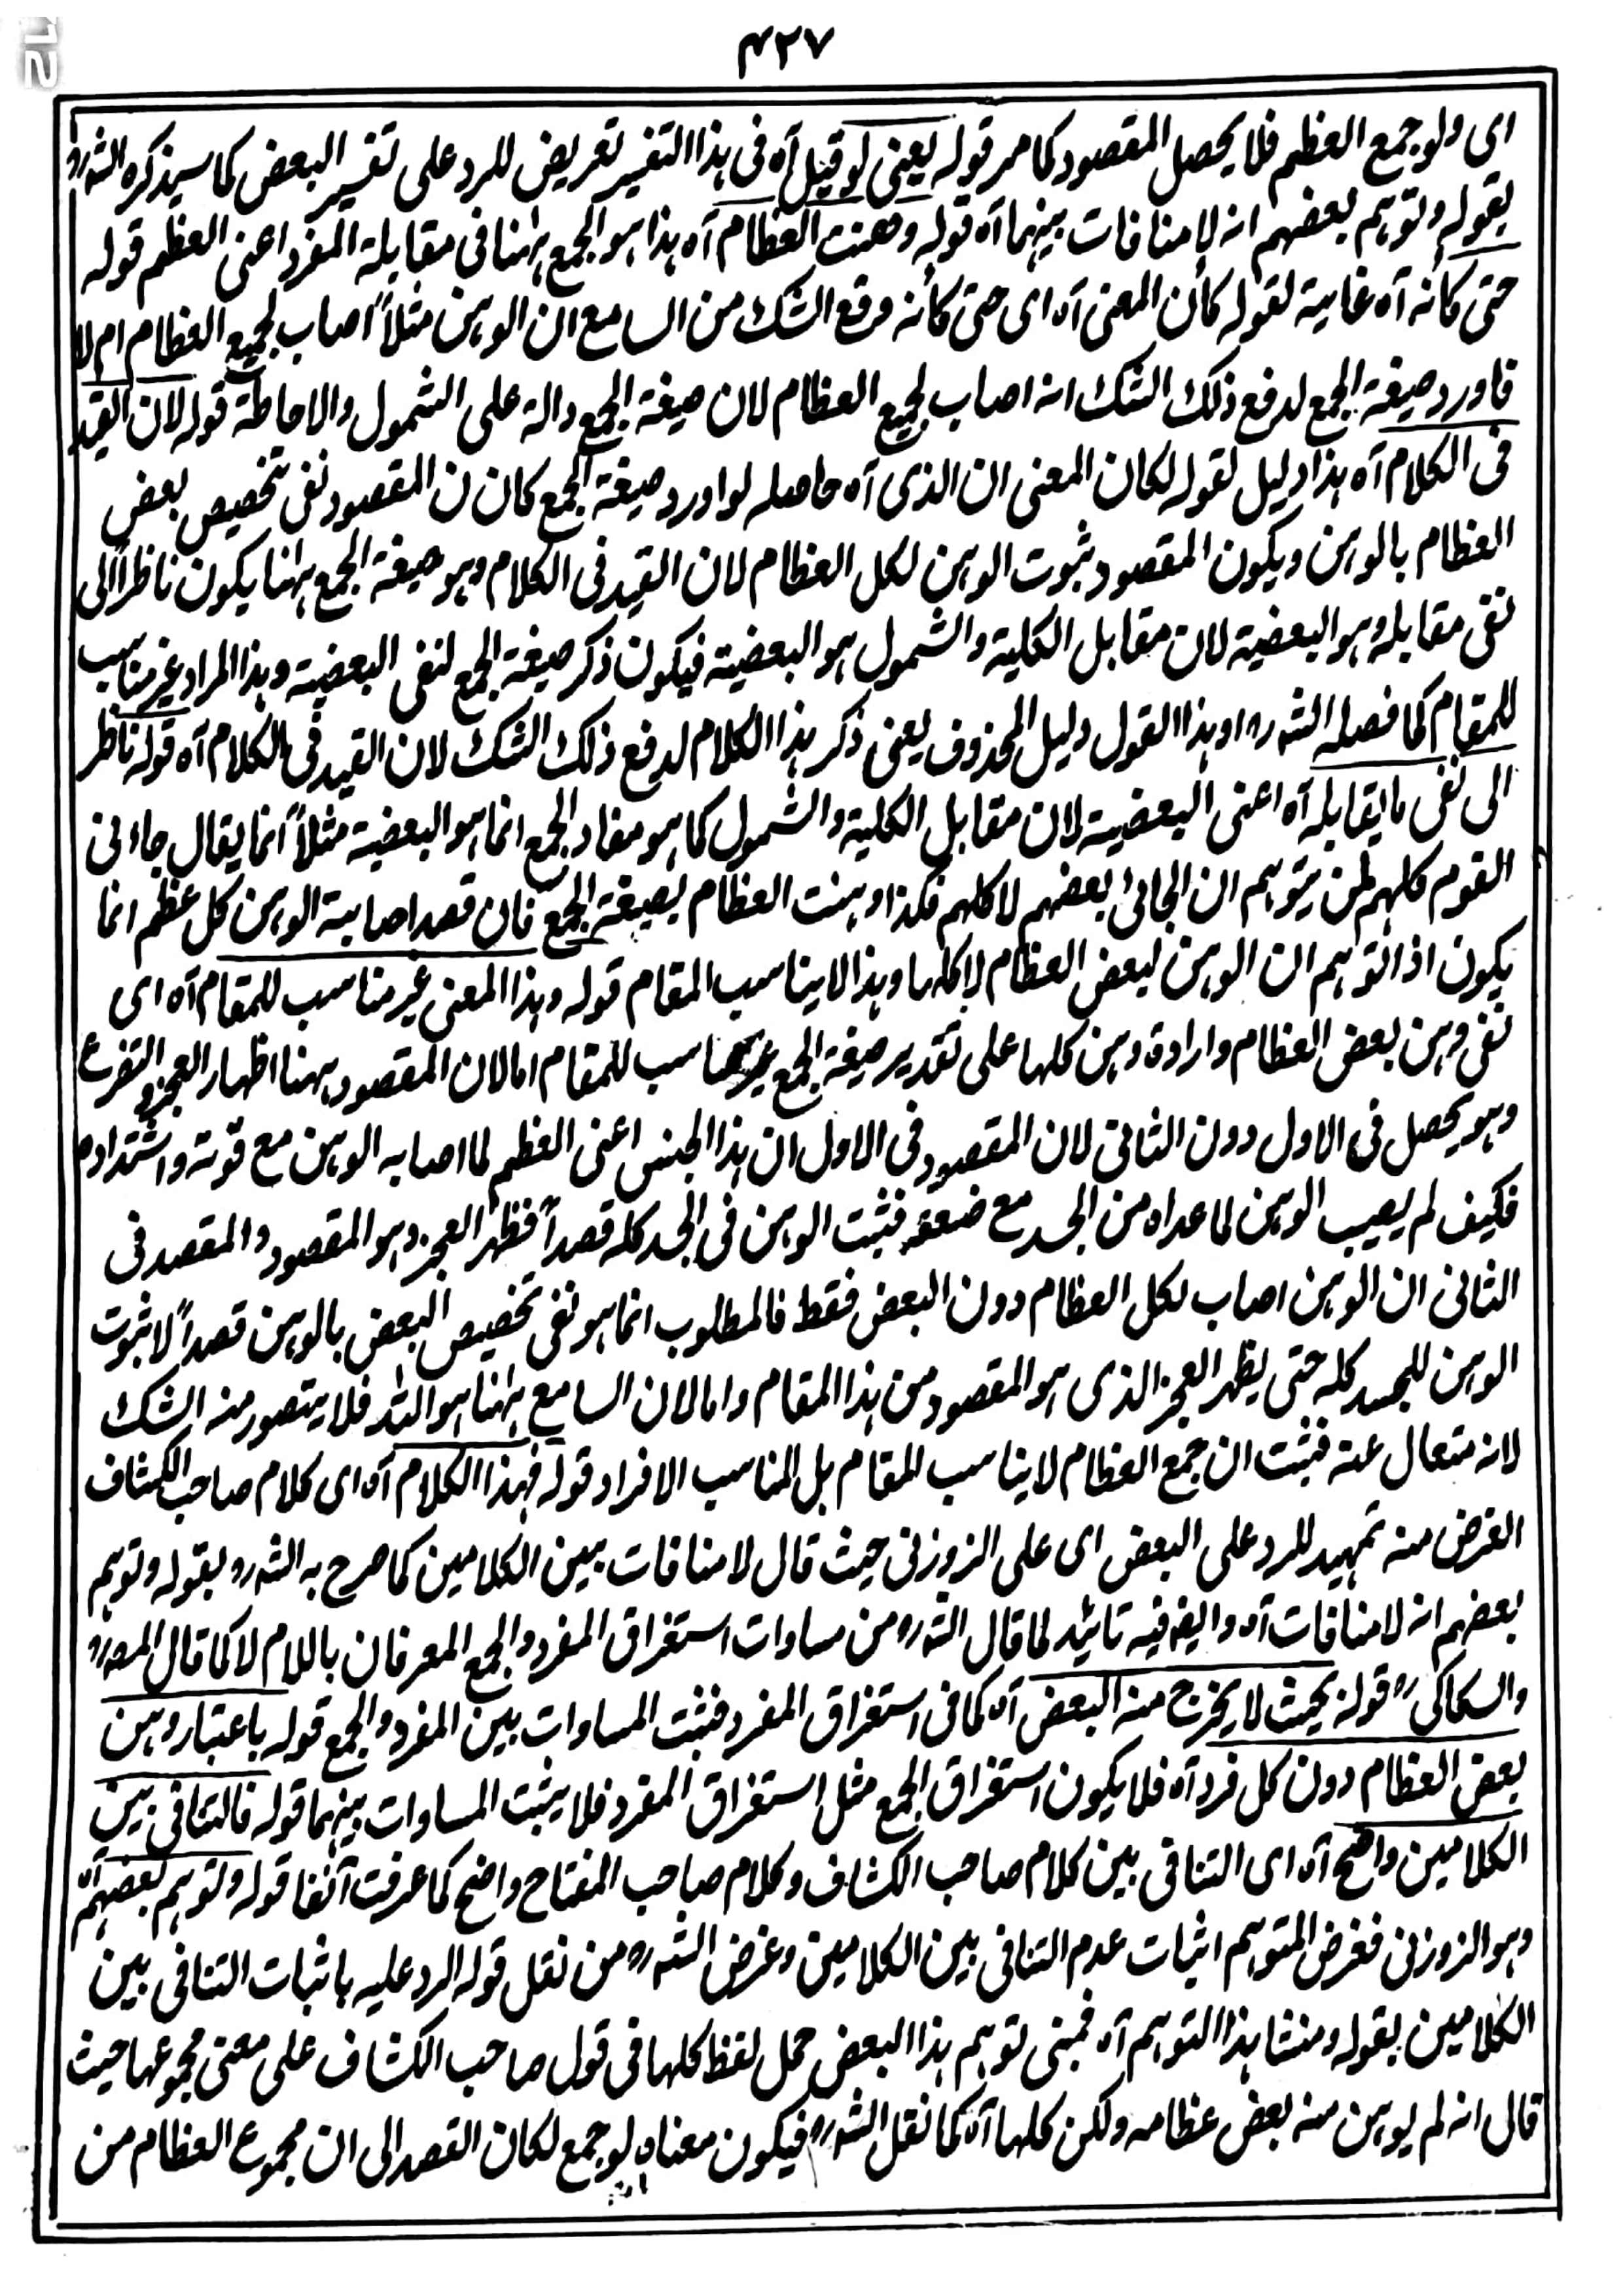 ٤٢٧
12
اى ولو جمع العظم فلا يحصل المقصود كما مر قوله يعنى لو قيل آه فى هذا التفسير تعريض للرد على تفسير البعض كما سيذكره الشارح
بقوله وتوهم بعضهم انه لا منافات بينهما آه قوله وهنت العظام آه هذا هو الجمع ههنا فى مقابلة المفرد اعنى العظم قوله
حتى كأنه آه غاية لقوله كأن المعنى آه اى حتى كأنه وقع الشك من السامع ان الوهن مثلاً اصاب لجميع العظام ام لا
فاورد صيغة الجمع لدفع ذلك الشك انه اصاب لجميع العظام لان صيغة الجمع دالة على الشمول والاحاطة قوله لان القيد
فى الكلام آه هذا دليل لقوله لكان المعنى ان الذى آه حاصله لو اورد صيغة الجمع كان ن المقصود نفى تخصيص بعض
العظام بالوهن ويكون المقصود ثبوت الوهن لكل العظام لان القيد فى الكلام وهو صيغة الجمع ههنا يكون ناظراً الى
نفى مقابله وهو البعضية لان مقابل الكلية والشمول هو البعضية فيكون ذكر صيغة الجمع لنفى البعضية وهذا المراد غير مناسب
للمقام كما فصله الشه ره او هذا القول دليل المحذوف يعنى ذكر هذا الكلام لدفع ذلك الشك لان القيد فى الكلام آه قوله ناظر
الى نفى ما يقابله آه اعنى البعضية لان مقابل الكلية والشمول كما هو مفاد الجمع انما هو البعضية مثلاً انما يقال جاءنى
القوم كلهم لمن يتوهم ان الجائى بعضهم لا كلهم فكذا وهنت العظام بصيغة الجمع فان قصد اصابة الوهن كل عظم انما
يكون اذا توهم ان الوهن لبعض العظام لا كلها وهذا لا يناسب المقام قوله وهذا المعنى غير مناسب للمقام آه اى
نفى وهن بعض العظام وارادة وهن كلها على تقدير صيغة الجمع غير مناسب للمقام اما لان المقصود ههنا اظهار العجز والتضرع
وهو يحصل فى الاول دون الثانى لان المقصود فى الاول ان هذا الجنس اعنى العظم لما اصابه الوهن مع قوته واشتداده
فكيف لم يصيب الوهن لما عداه من الجسد مع ضعفه فثبت الوهن فى الجسد كله قصداً فظهر العجز وهو المقصود والمقصد فى
الثانى ان الوهن اصاب لكل العظام دون البعض فقط فالمطلوب انما هو نفى تخصيص البعض بالوهن قصداً لا ثبوت
الوهن للجسد كله حتى يظهر العجز الذى هو المقصود من هذا المقام واما لان السامع ههنا هو الله فلا يتصور منه الشك
لانه متعال عنه فثبت ان جمع العظام لا يناسب المقام بل المناسب الافراد قوله فهذا الكلام آه اى كلام صاحب الكشاف
الغرض منه تمهيد للرد على البعض اى على الزوزنى حيث قال لا منافات بين الكلامين كما صرح به الشه ره بقوله وتوهم
بعضهم انه لا منافات آه وايضه فيه تائيد لما قال الشه ره من مساوات استغراق المفرد والجمع المعرفان باللام لا كما قال المصه ره
والسكاكى ره قوله بحيث لا يخرج منه البعض آه كما فى استغراق المفرد فثبت المساوات بين المفرد والجمع قوله باعتبار وهن
بعض العظام دون كل فرد آه فلا يكون استغراق الجمع مثل استغراق المفرد فلا يثبت المساوات بينهما قوله فالتنافى بين
الكلامين واضح آه اى التنافى بين كلام صاحب الكشاف وكلام صاحب المفتاح واضح كما عرفت آنفا قوله وتوهم بعضهم آه
وهو الزوزنى فغرض المتوهم اثبات عدم التنافى بين الكلامين وغرض الشه ره من نقل قوله الرد عليه باثبات التنافى بين
الكلامين بقوله ومنشا هذا التوهم آه فمبنى توهم هذا البعض حمل لفظ كلها فى قول صاحب الكشاف على معنى مجموعها حيث
قال انه لم يوهن منه بعض عظامه ولكن كلها آه كما نقل الشه ره فيكون معناه لو جمع لكان القصد الى ان مجموع العظام من